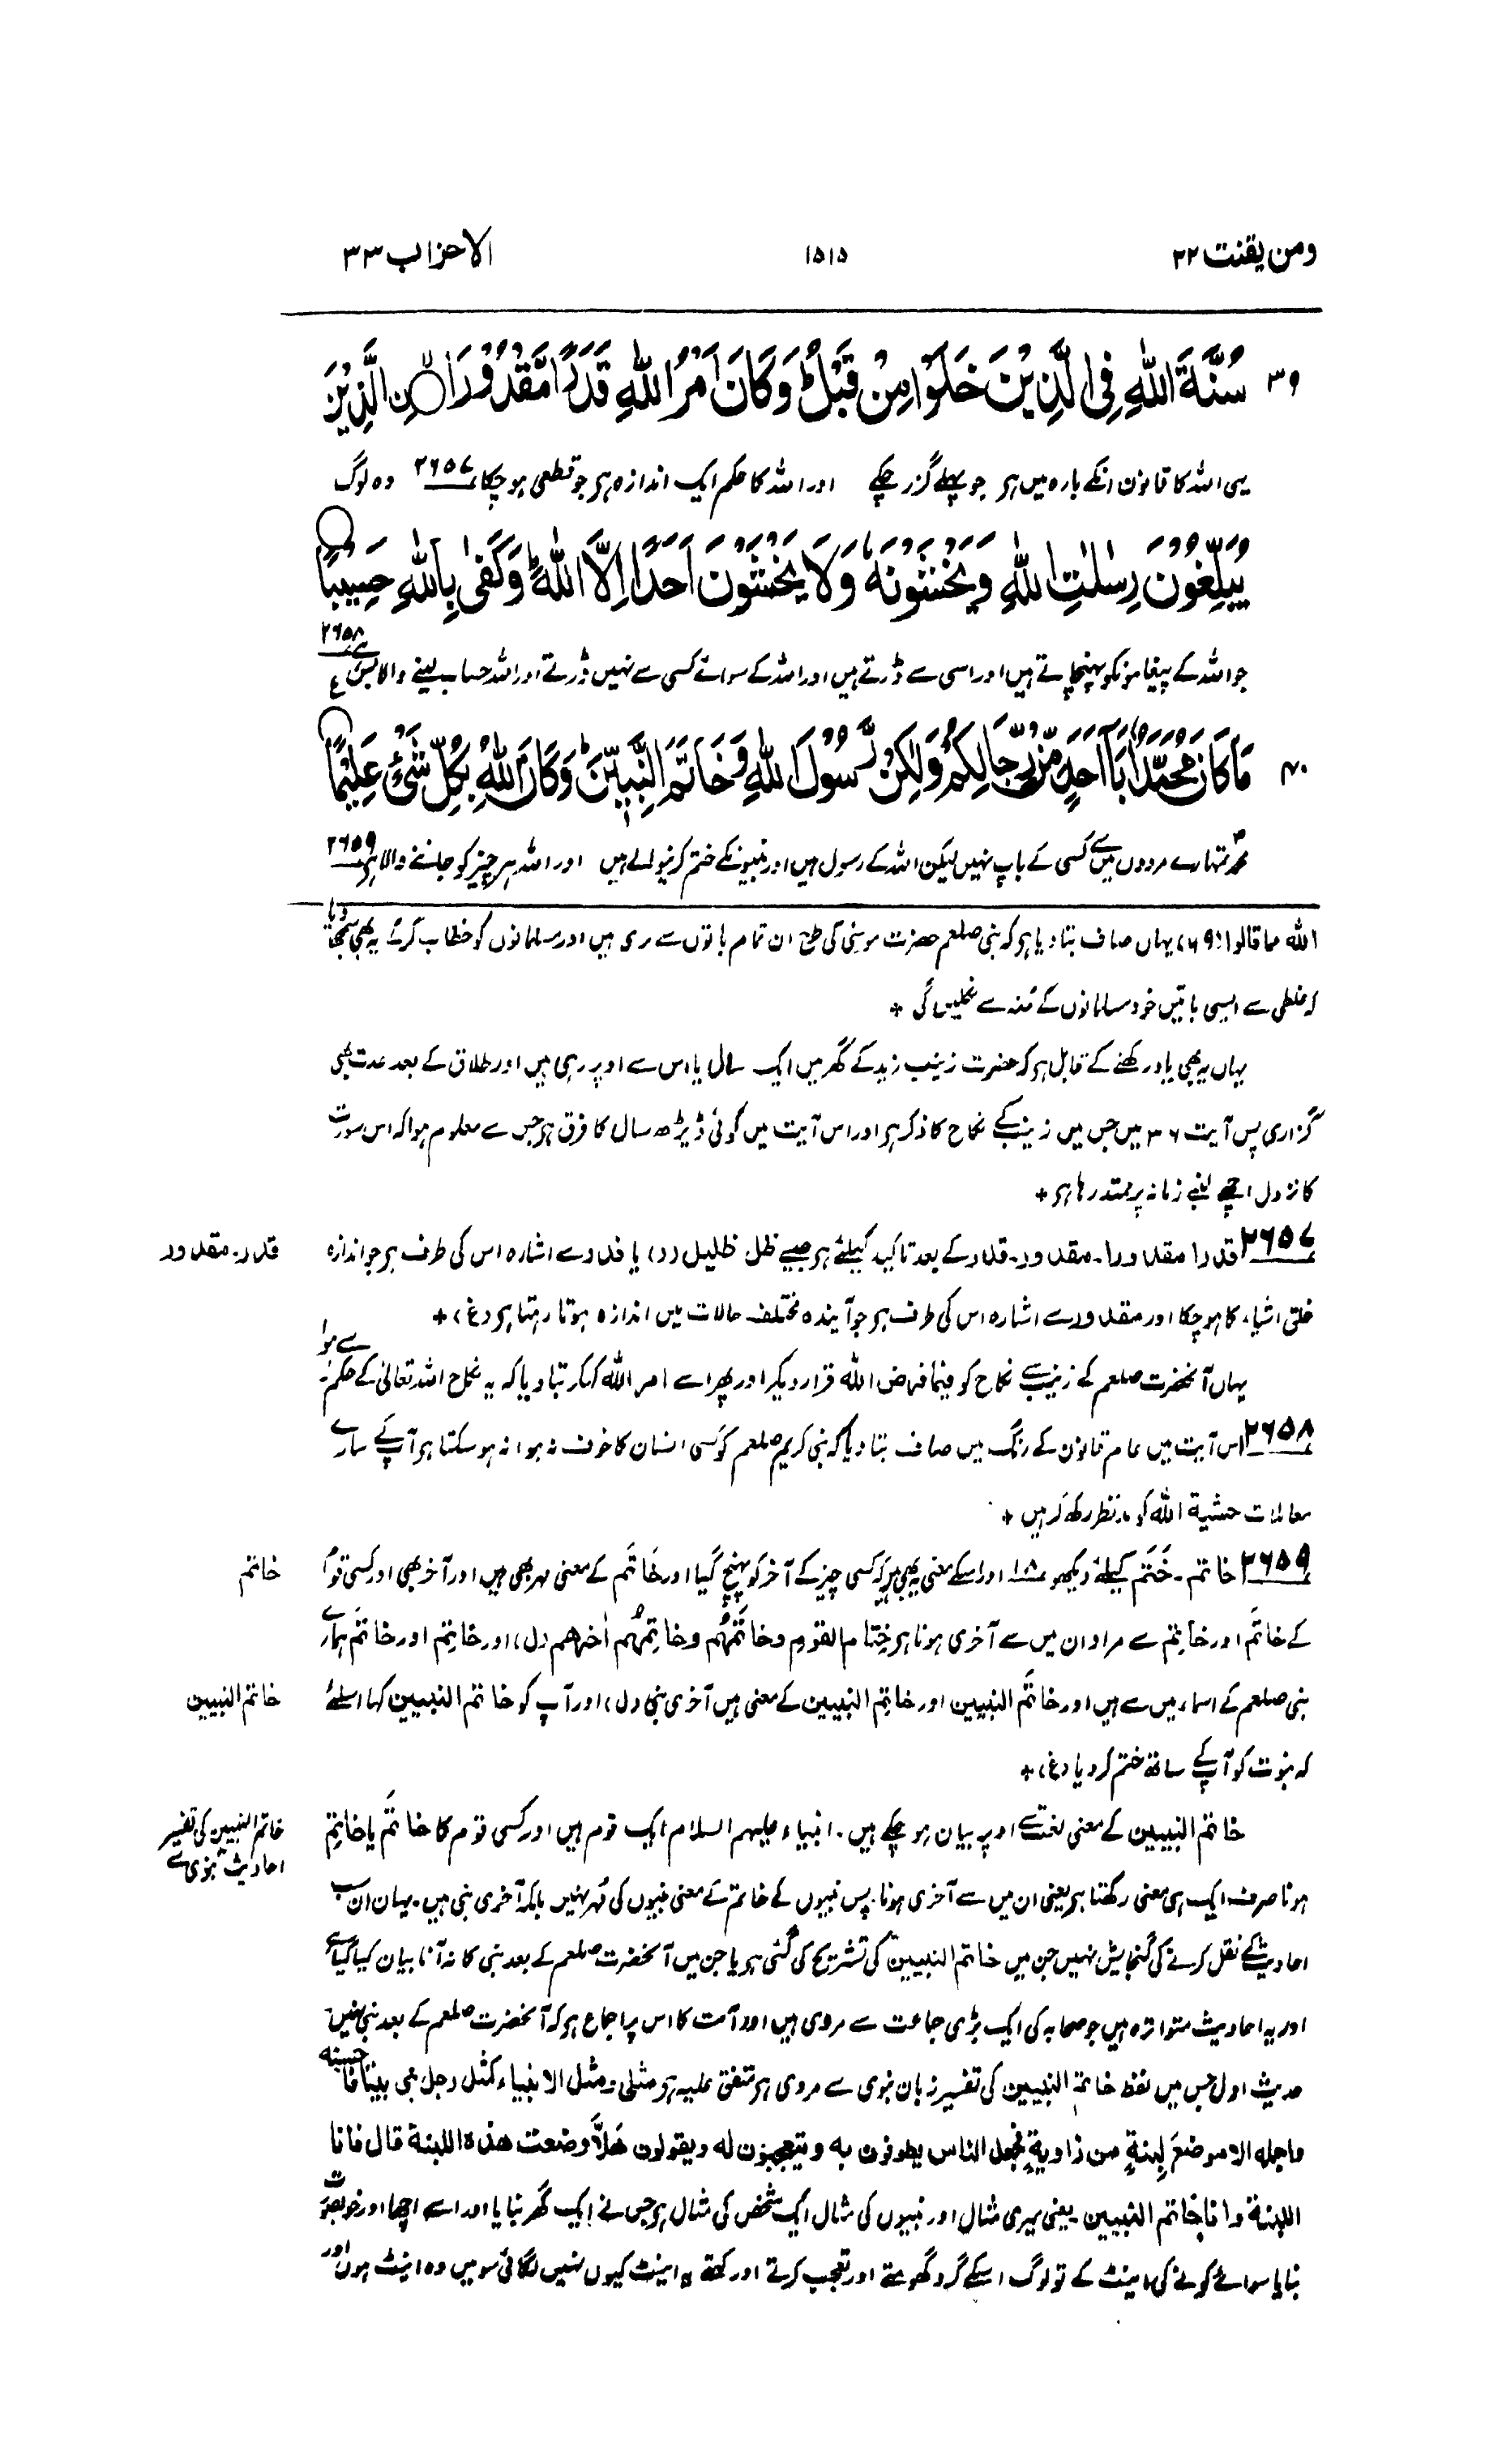 ومن یقنت ۲۲ ۱۵۱۵ الاحزاب ۳۳
۳۹ سُنَّةَ اللّٰهِ فِی الَّذِیْنَ خَلَوْا مِنْ قَبْلُ ؕ وَكَانَ اَمْرُ اللّٰهِ قَدَرًا مَّقْدُوْرَاۨ ۙ○ الَّذِیْنَ
یہی اللہ کا قانون انکے بارہ میں ہر جو پہلے گزر چکے اور اللہ کا حکم ایک اندازہ ہر جو قطعی ہو چکا ۲۶۵۷ وہ لوگ
یُبَلِّغُوْنَ رِسٰلٰتِ اللّٰهِ وَیَخْشَوْنَهٗ وَلَا یَخْشَوْنَ اَحَدًا اِلَّا اللّٰهَ ؕ وَكَفٰی بِاللّٰهِ حَسِیْبًا ○
جو اللہ کے پیغامونکو پہنچاتے ہیں اور اسی سے ڈرتے ہیں اور اللہ کے سوائے کسی سے نہیں ڈرتے اور اللہ حساب لینے والا بس ہے ۲۶۵۸ ع
۴۰ مَا كَانَ مُحَمَّدٌ اَبَاۤ اَحَدٍ مِّنْ رِّجَالِكُمْ وَلٰكِنْ رَّسُوْلَ اللّٰهِ وَخَاتَمَ النَّبِیّٖنَ ؕ وَكَانَ اللّٰهُ بِكُلِّ شَیْءٍ عَلِیْمًا ○
محمدؐ تمہارے مردوں میں سے کسی کے باپ نہیں لیکن اللہ کے رسول ہیں اور نبیونکے ختم کرنیوالے ہیں اور اللہ ہر چیز کو جاننے والا ہر ۲۶۵۹
اللہ مما قالوا (۶۹)، یہاں صاف بتا دیا ہر کہ نبی صلعم حضرت موسٰی کی طرح ان تمام باتوں سے بری ہیں اور مسلمانوں کو خطاب کرکے یہ بھی سمجھا دیا
کہ غلطی سے ایسی باتیں خود مسلمانوں کے منہ سے نکلیں گی +
یہاں یہ بھی یاد رکھنے کے قابل ہر کہ حضرت زینب زید کے گھر میں ایک سال یا اس سے اوپر رہی ہیں اور طلاق کے بعد عدت بھی
گزاری پس آیت ۳۶ میں جس میں زینبؓ کے نکاح کا ذکر ہر اور اس آیت میں کوئی ڈیڑھ سال کا فرق ہر جس سے معلوم ہوا کہ اس سورت
کا نزول اچھے لمبے زمانہ پر ممتد رہا ہر +
۲۶۵۷ قدرا مقدورا ۔ مقدور ۔ قدر کے بعد تاکید کیلئے ہر جیسے ظل ظلیل (ر) یا قدر سے اشارہ اس کی طرف ہر جو اندازہ
قدر ۔ مقدور
خلق اشیاء کا ہو چکا اور مقدور سے اشارہ اس کی طرف ہر جو آیندہ مختلف حالات میں اندازہ ہوتا رہتا ہر (غ) +
یہاں آنحضرت صلعم کے زینبؓ سے نکاح کو فیما فرض اللہ قرار دیکر اور پھر اسے امر اللہ کہکر بتا دیا کہ یہ نکاح اللہ تعالیٰ کے حکم سے ہوا
۲۶۵۸ اس آیت میں عام قانون کے رنگ میں صاف بتا دیا کہ نبی کریم صلعم کو کسی انسان کا خوف نہ ہوا نہ ہو سکتا ہر آپ کے سارے
معاملات خشیة اللہ کو مدنظر رکھ کر ہیں +
۲۶۵۹ خاتم ۔ خَتَم کیلئے دیکھو ۱۸ اور اسکے معنی یہ بھی ہیں کہ کسی چیز کے آخر کو پہنچ گیا اور خَاتَم کے معنی مہر بھی ہیں اور آخر بھی اور کسی قوم
خاتم
کے خاتَم اور خاتِم سے مراد ان میں سے آخری ہونا ہر خِتام القوم وخاتَمُهُم وخاتِمُهُم اٰخرهم (ل)، اور خاتِم اور خاتَم ہمارے
نبی صلعم کے اسماء میں سے ہیں اور خاتَم النبیین اور خاتِم النبیین کے معنی ہیں آخری نبی (ل)، اور آپ کو خاتم النبیین کہا اسلئے
خاتم النبیین
کہ نبوت کو آپ کے ساتھ ختم کر دیا (غ)، +
خاتم النبیین کے معنی لغت سے اوپر بیان ہو چکے ہیں ۔ انبیاء علیہم السلام ایک قوم ہیں اور کسی قوم کا خاتَم یا خاتِم
خاتم النبیین کی تفسیر
احادیث نبوی سے
ہونا صرف ایک ہی معنی رکھتا ہر یعنی ان میں سے آخری ہونا ۔ پس نبیوں کے خاتم کے معنی نبیوں کی مُہر نہیں بلکہ آخری نبی ہیں ۔ یہاں ان سب
احادیث کے نقل کرنے کی گنجایش نہیں جن میں خاتم النبیین کی تشریح کی گئی ہر یا جن میں آنحضرت صلعم کے بعد نبی کا نہ آنا بیان کیا گیا ہے
اور یہ احادیث متواترہ ہیں جو صحابہ کی ایک بڑی جماعت سے مروی ہیں اور امت کا اس پر اجماع ہر کہ آنحضرت صلعم کے بعد نبی نہیں ۔
حدیث اول جس میں لفظ خاتم النبیین کی تفسیر زبان نبوی سے مروی ہر متفق علیہ ہر مثلی ومثل الانبیاء کمثل رجل بنی بیتا فاحسنہ
واجملہ الا موضعَ لِبنةٍ من زاویةٍ فجعل الناس یطوفون بہ ویتعجبون لہ ویقولون هَلَّا وضعت هذہ اللبنة قال فانا
اللبنة وانا خاتم النبیین یعنی میری مثال اور نبیوں کی مثال ایک شخص کی مثال ہر جس نے ایک گھر بنایا اور اسے اچھا اور خوبصورت
بنایا سوائے کونے کی اینٹ کے تو لوگ اسکے گرد گھومتے اور تعجب کرتے اور کہتے یہ اینٹ کیوں نہیں لگائی سو میں وہ اینٹ ہوں اور